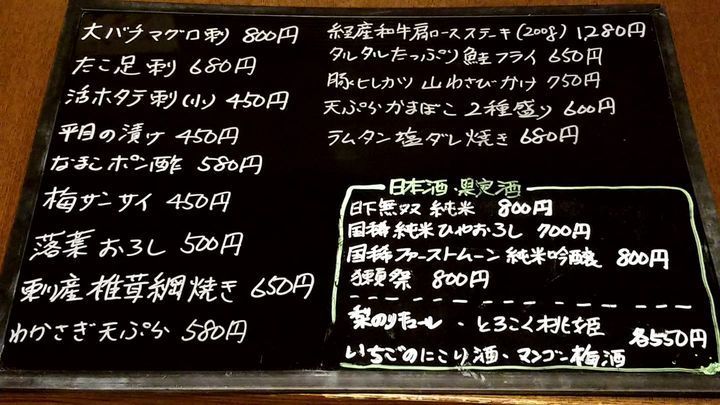 大バチマグロ刺 800円
たこ足刺 680円
活ホタテ刺(小) 450円
平目の漬け 450円
なまこポン酢 580円
梅サンサイ 450円
落葉おろし 500円
釧産椎茸網焼き 650円
わかさぎ天ぷら 580円
経産和牛肩ロースステーキ(200g) 1280円
タルタルたっぷり鮭フライ 650円
豚ヒレカツ 山わさびかけ 750円
天ぷらかまぼこ 2種盛り 600円
ラムタン塩ダレ焼き 680円
日本酒・果実酒
日下無双 純米 800円
国稀 純米ひやおろし 700円
国稀ファーストムーン 純米吟醸 800円
獺祭 800円
梨のリキュール・とろこく桃姫 各550円
いちごのにごり酒・マンゴー梅酒